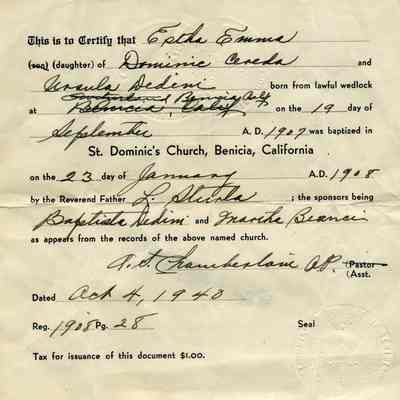 This is to Certify that Estha Emma
(son) (daughter) of Dominic Cereda and
Ursula Dedini born from lawful wedlock
Benicia Calif
at Benicia, Calif on the 19 day of
September A.D. 1907 was baptized in
St. Dominic's Church, Benicia, California
on the 23 day of January A.D. 1908
by the Reverend Father L. ; the sponsors being
Baptista Dedini and Martha Bianci
as appears from the records of the above named church.
A. S. Chamberlain O.P. (Pastor
(Asst.
Dated Oct 4, 1940
Reg. 1908 Pg. 28 Seal
Tax for issuance of this document $1.00.